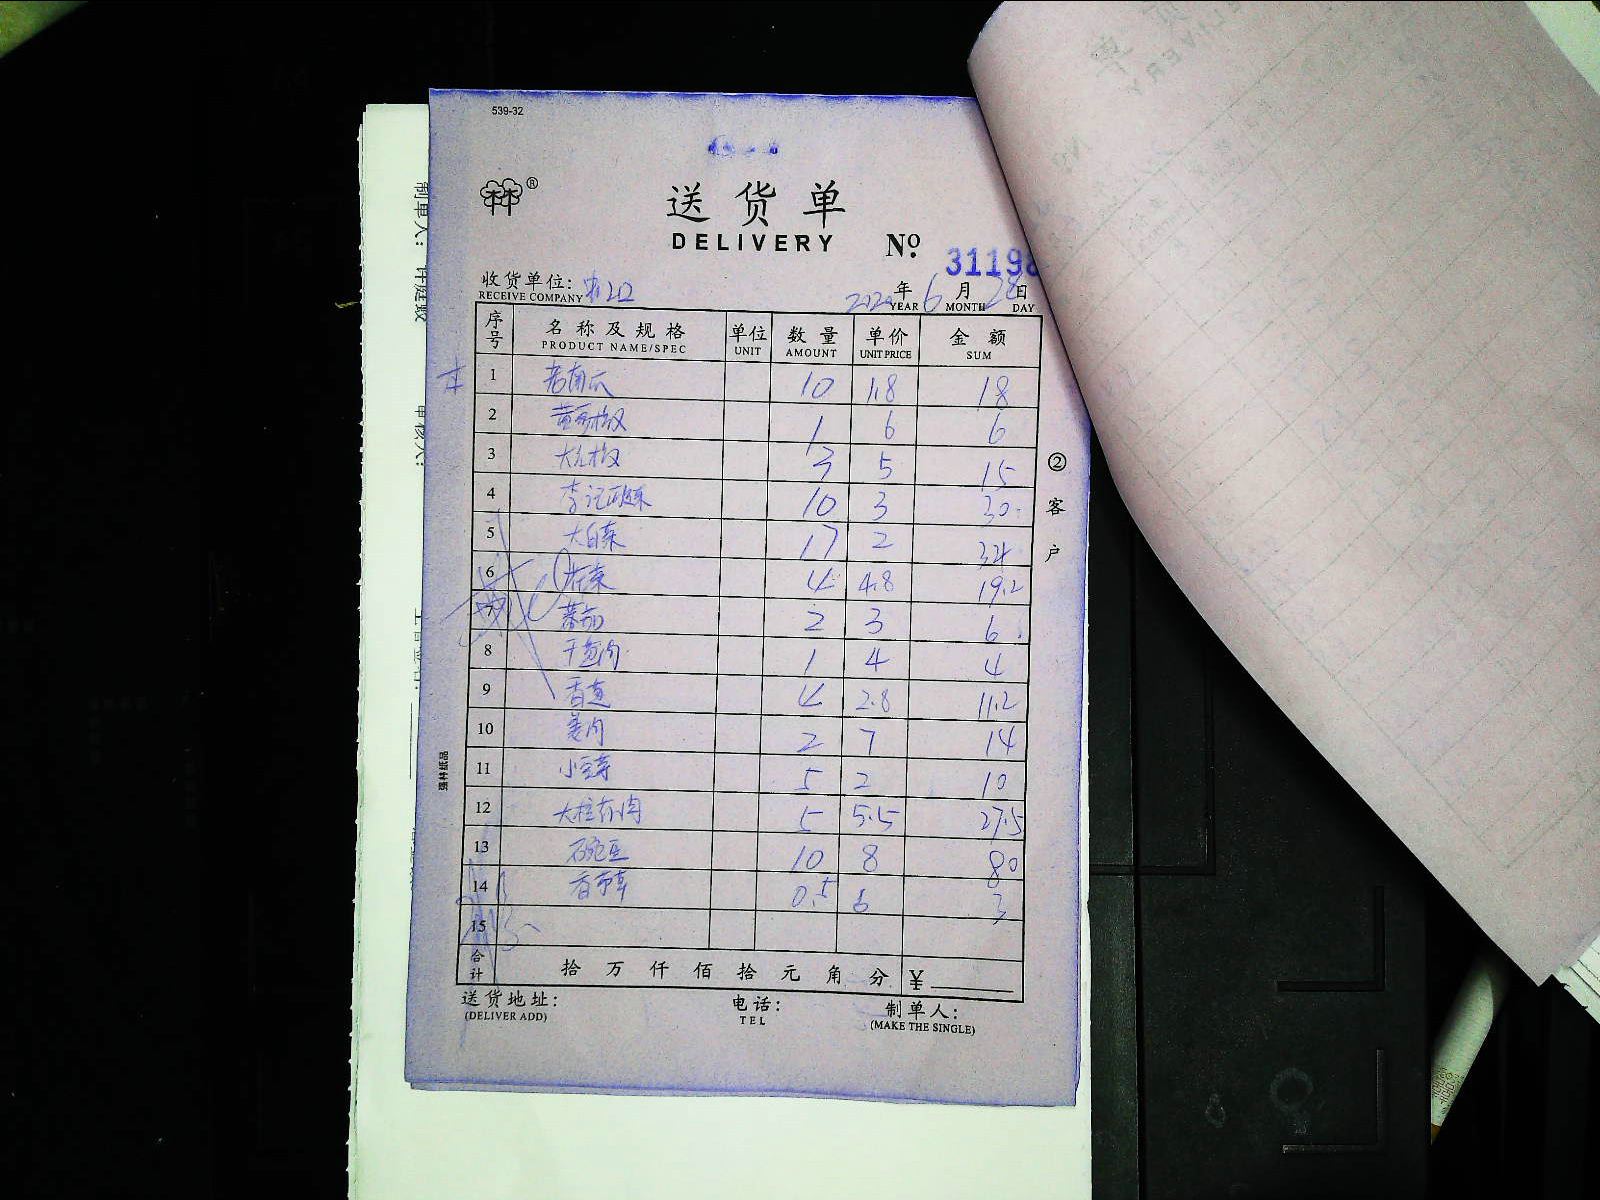 539-32
®
送货单
DELIVERY Nº. 31198
收货单位:
RECEIVE COMPANY
2020年6月28日
YEAR MONTH DAY
序号 名称及规格 单位 数量 单价 金额
PRODUCT NAME/SPEC UNIT AMOUNT UNIT PRICE SUM
1 老南瓜 10 1.8 18
2 1 6 6
3 3 5 15
4 10 3 30
5 大白菜 17 2 34
6 4 4.8 19.2
7 蕃茄 2 3 6
8 干葱肉 1 4 4
9 香葱 4 2.8 11.2
10 姜肉 2 7 14
11 小豆芽 5 2 10
12 5 5.5 27.5
13 10 8 80
14 0.5 6 3
15
合计 拾万仟佰拾元角分 ¥
送货地址: 电话: 制单人:
(DELIVER ADD) TEL (MAKE THE SINGLE)
②客户
强林纸品
制单人:
审核人: